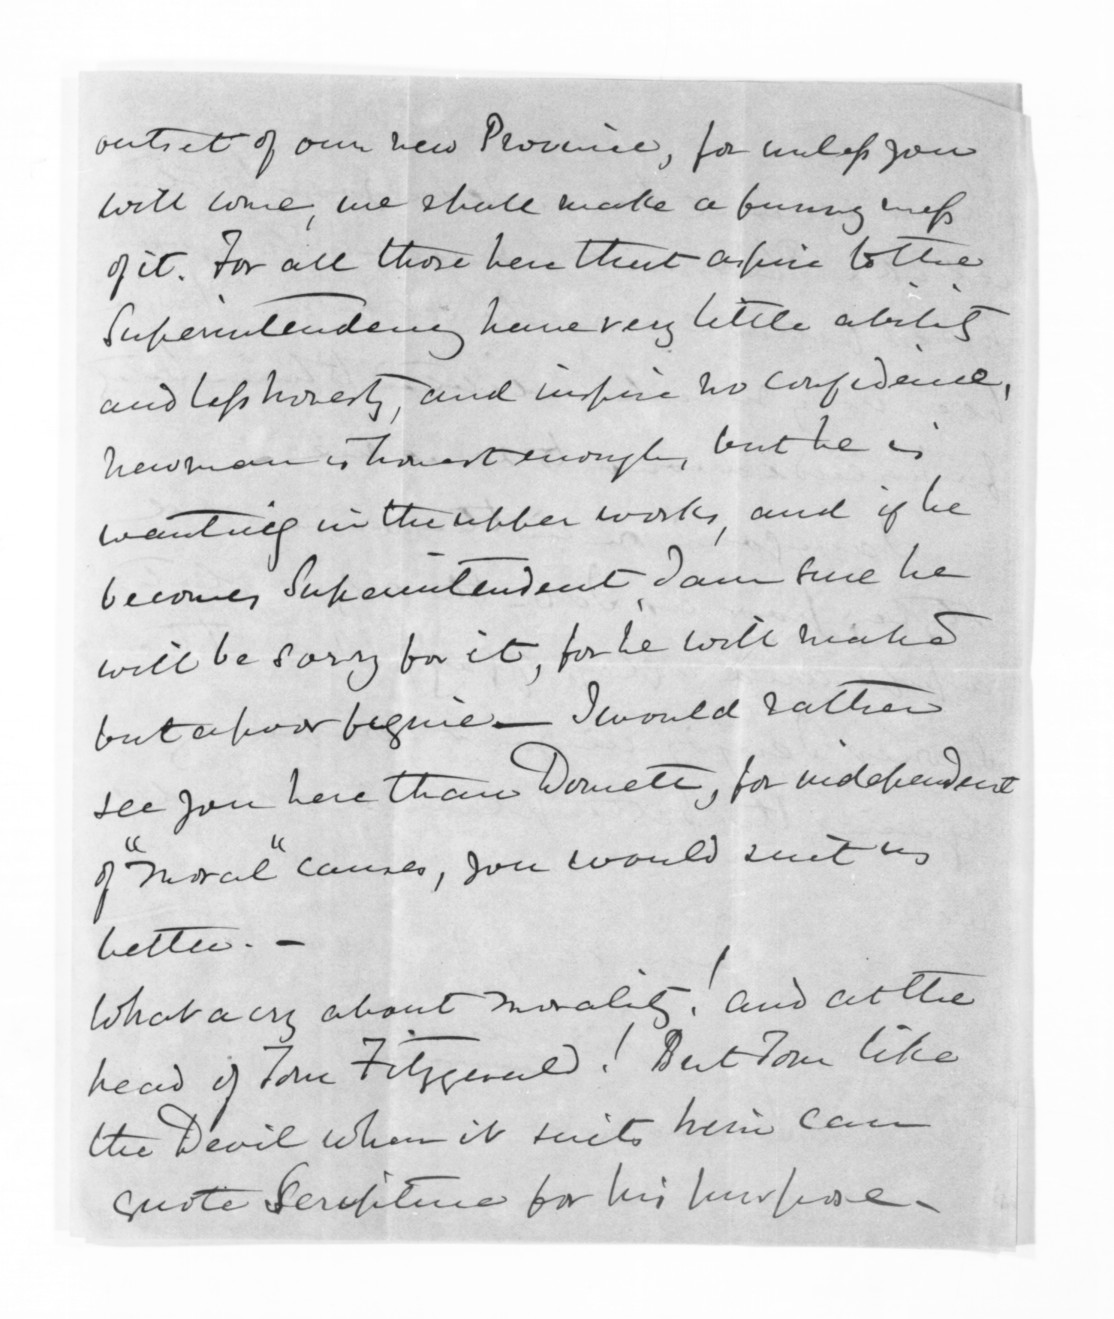 outset of our new Province, for unless you
will come, we shall make a funny mess
of it. For all those here that aspire to the
Superintendency have very little ability
and less honesty, and inspire no confidence,
Newman is honest enough, but he is
wanting in the upper works, and if he
becomes Superintendent, I am sure he
will be sorry for it, for he will make
but a poor figure — I would rather
see you here than Domett, for independent
of "moral" causes, you would suit us
better. —
What a cry about morality! and at the
head of Tom Fitzgerald! But Tom like
the Devil when it suits him can
quote Scripture for his purpose —